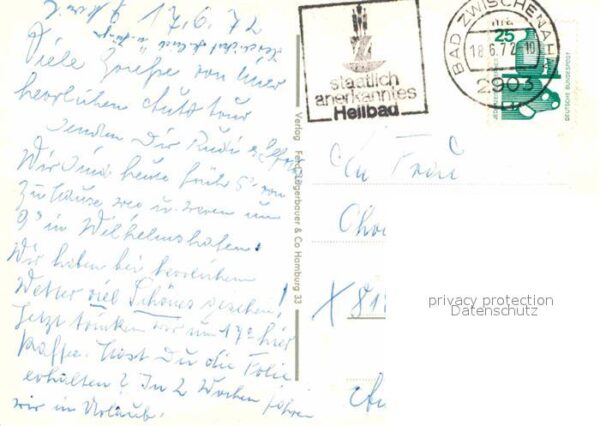 17.6.72
Viele Grüße von einer
herrlichen Autotour
senden Dir Rudi
Wir sind heute früh 5° von
zu Hause weg u. waren um
9° in Wilhelmshafen.
Wir haben bei herrlichem
Wetter viel Schönes gesehen!
Jetzt trinken wir um 17° hier
Kaffe. Hast Du die Folie
erhalten? In 2 Wochen fahren
wir in Urlaub.
Verlag Ferd. Lagerbauer & Co Hamburg 33
staatlich
anerkanntes
Heilbad
BAD ZWISCHENAH
18.6.72-10
2903
25
DEUTSCHE BUNDESPOST
Frau
privacy protection
Datenschutz